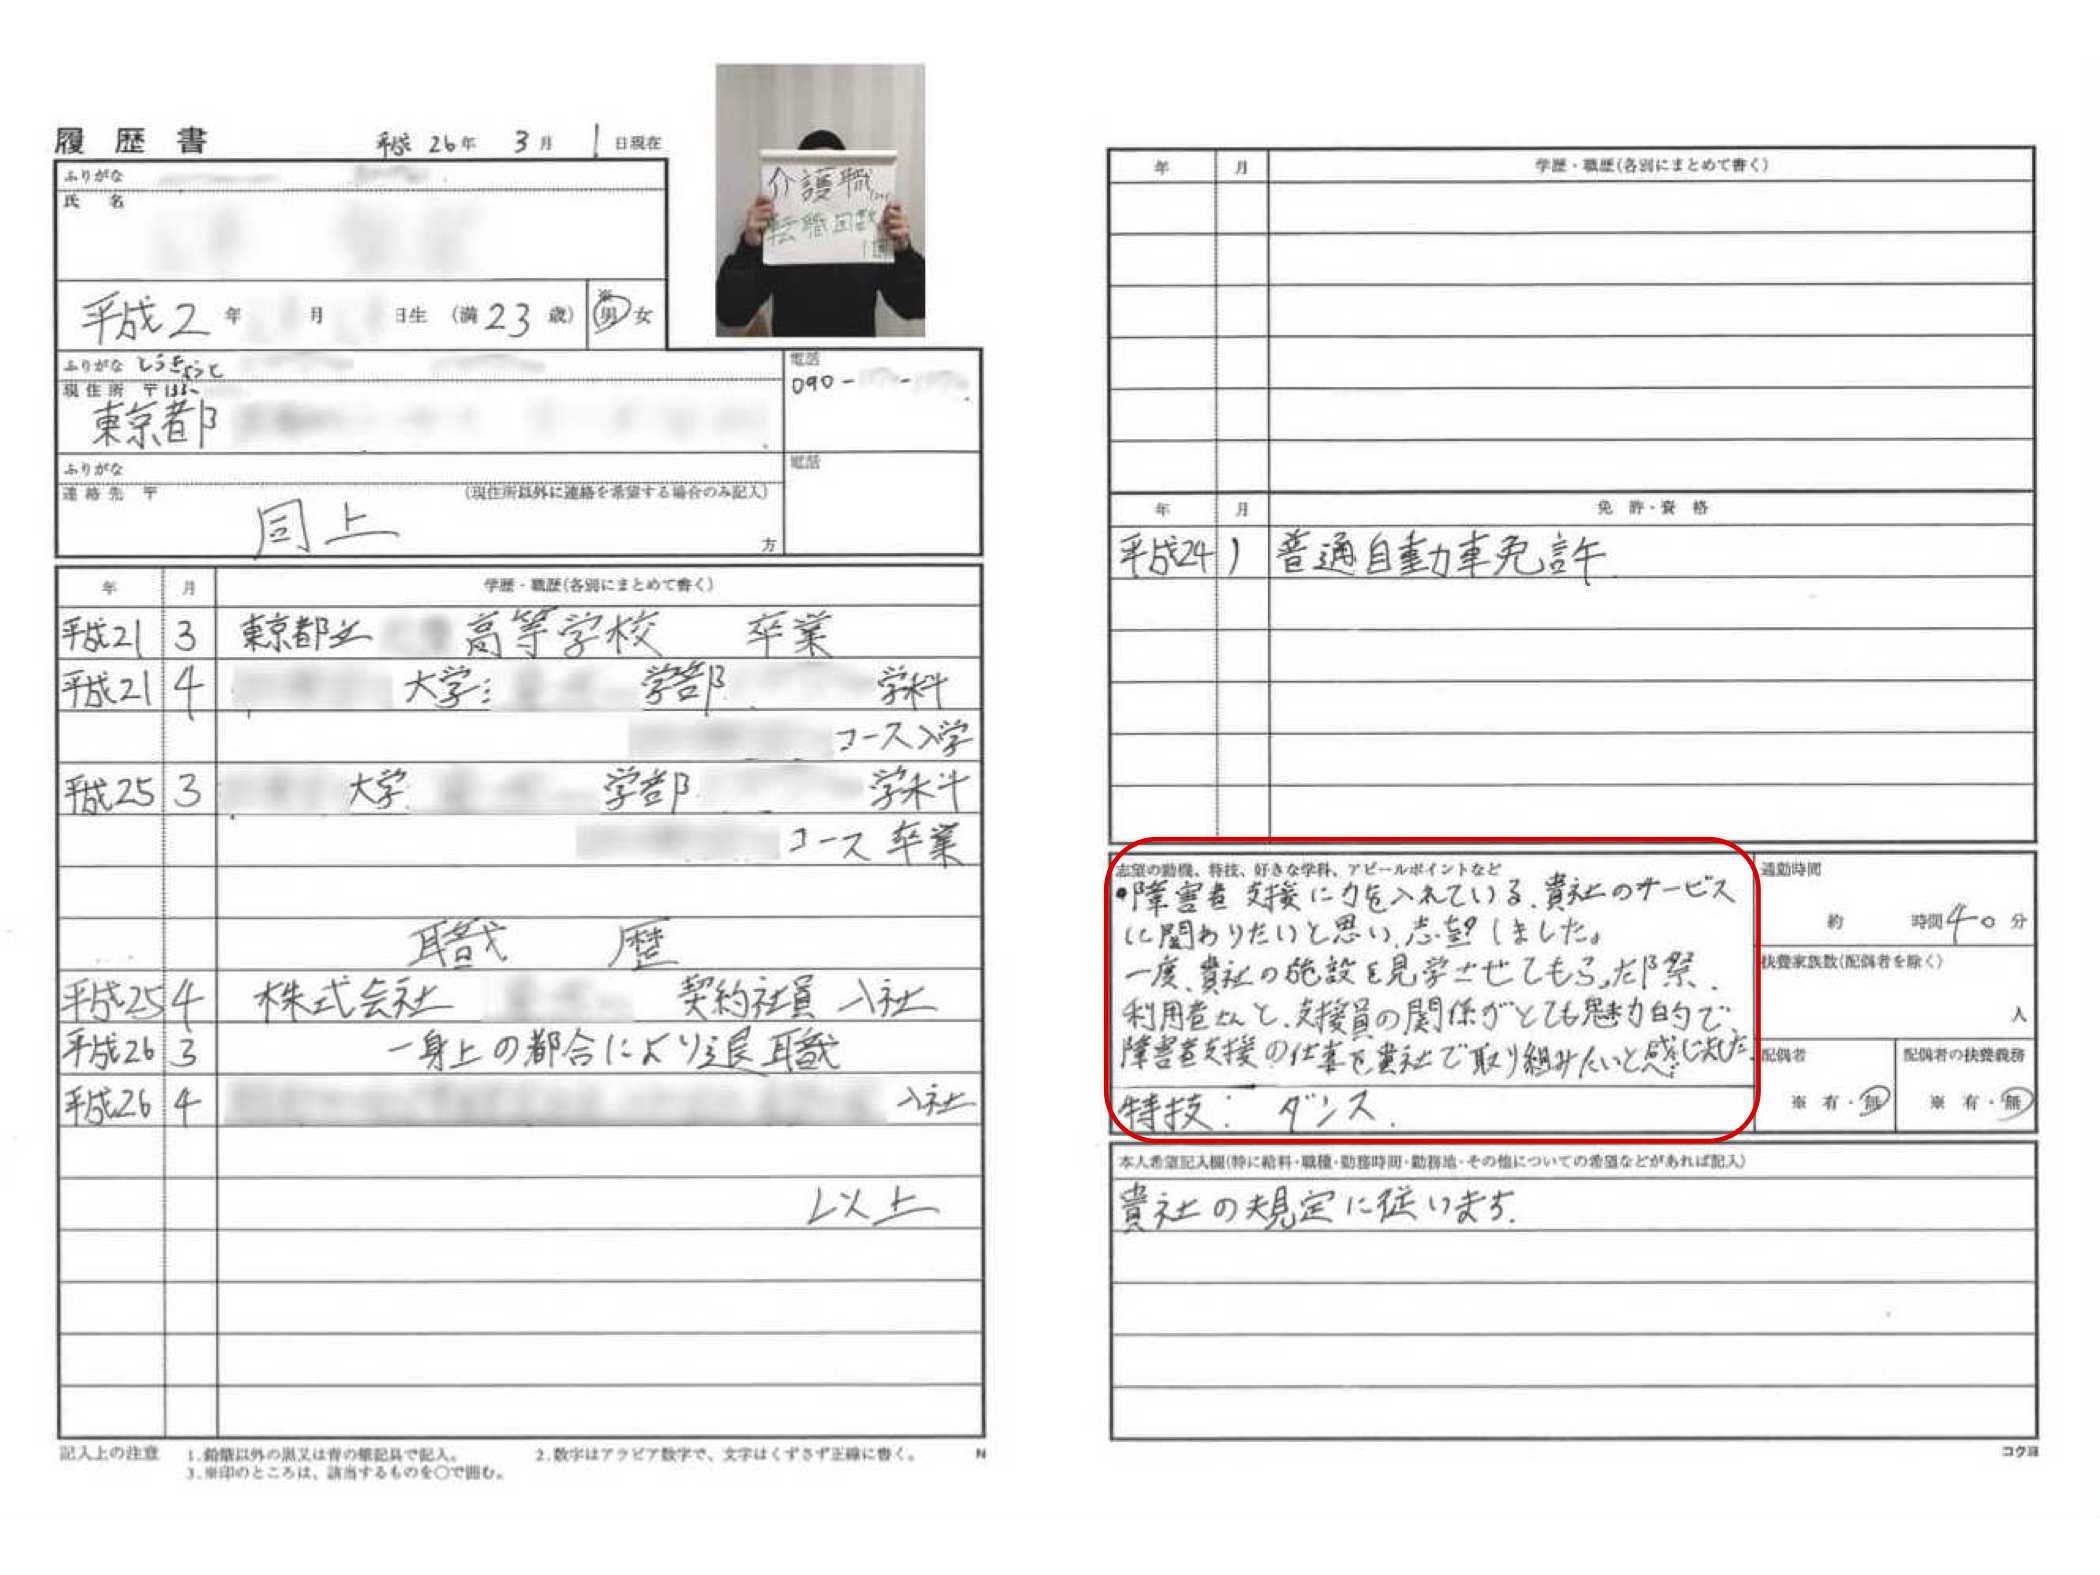 履歴書 平成26年 3月 1日現在
ふりがな
氏名
平成2年 月 日生 (満23歳) ※男・女
介護職
転職回数
1回
ふりがな とうきょうと
現住所 〒133-
東京都
電話
090- - 
ふりがな
連絡先 〒 (現住所以外に連絡を希望する場合のみ記入)
同上
方
電話
年 月 学歴・職歴(各別にまとめて書く)
平成21 3 東京都立 高等学校 卒業
平成21 4 大学 学部 学科
コース入学
平成25 3 大学 学部 学科
コース 卒業
職歴
平成25 4 株式会社 契約社員 入社
平成26 3 一身上の都合により退職
平成26 4 入社
以上
記入上の注意 1.鉛筆以外の黒又は青の筆記具で記入。 2.数字はアラビア数字で、文字はくずさず正確に書く。 N
3.※印のところは、該当するものを○で囲む。
年 月 学歴・職歴(各別にまとめて書く)
年 月 免許・資格
平成24 1 普通自動車免許
志望の動機、特技、好きな学科、アピールポイントなど
・障害者支援に力を入れている、貴社のサービス
に関わりたいと思い、志望しました。
一度、貴社の施設を見学させてもらった際、
利用者さんと、支援員の関係がとても魅力的で
障害者支援の仕事を貴社で取り組みたいと感じました。
特技: ダンス.
通勤時間
約 時間40分
扶養家族数(配偶者を除く)
人
配偶者
※ 有・無
配偶者の扶養義務
※ 有・無
本人希望記入欄(特に給料・職種・勤務時間・勤務地・その他についての希望などがあれば記入)
貴社の規定に従います.
コクヨ